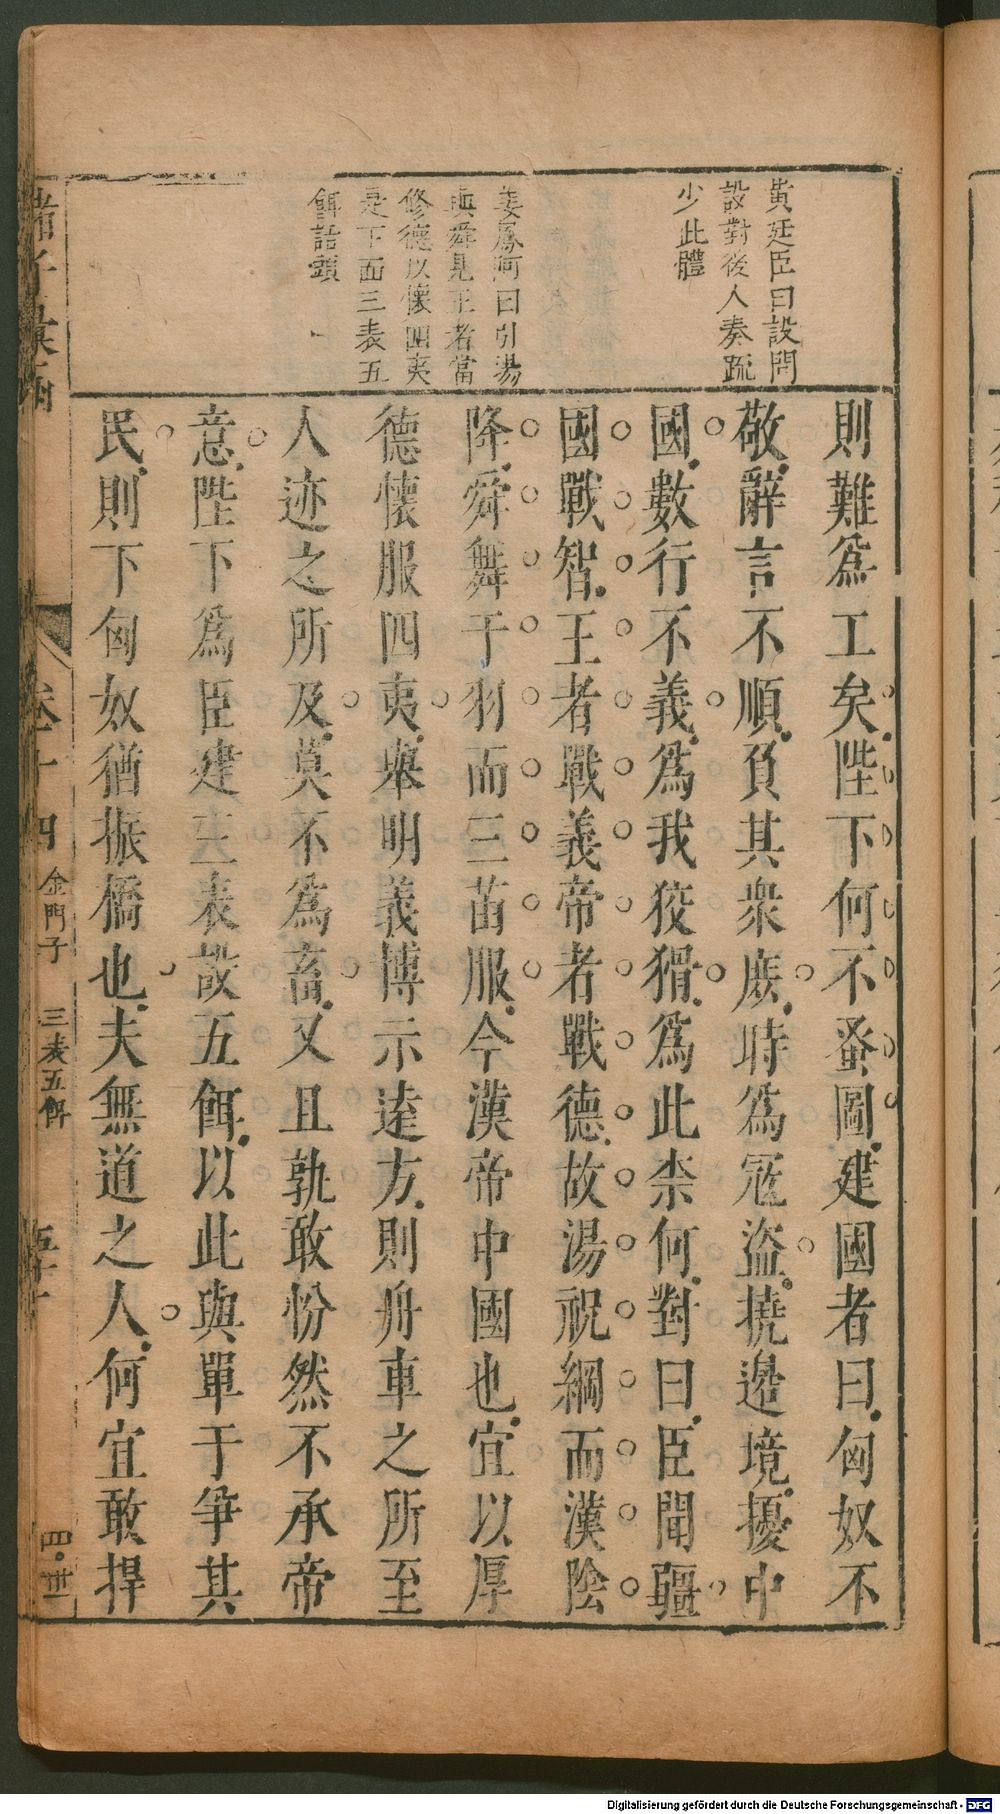 黄廷臣曰設問
設對後人奏疏
少此體
姜鳳阿曰引湯
與舜見王者當
修德以懷四夷
是下面三表五
餌話頭
則難爲工矣陛下何不蚤圖建國者曰匈奴不
敬辭言不順負其衆庶時爲冦盜撓邉境擾中
國數行不義爲我狡猾爲此柰何對曰臣聞疆
國戰智王者戰義帝者戰德故湯祝綱而漢陰
降舜舞于羽而三苗服今漢帝中國也宜以厚
德懷服四夷舉明義博示逺方則舟車之所至
人迹之所及莫不爲畜又且孰敢忿然不承帝
意陛下爲臣建三表設五餌以此與單于爭其
民則下匈奴猶振槁也夫無道之人何宜敢捍
諸子彙函
卷十四
金門子
三表五餌
五十一
四·卅
Digitalisierung gefördert durch die Deutsche Forschungsgemeinschaft - DFG